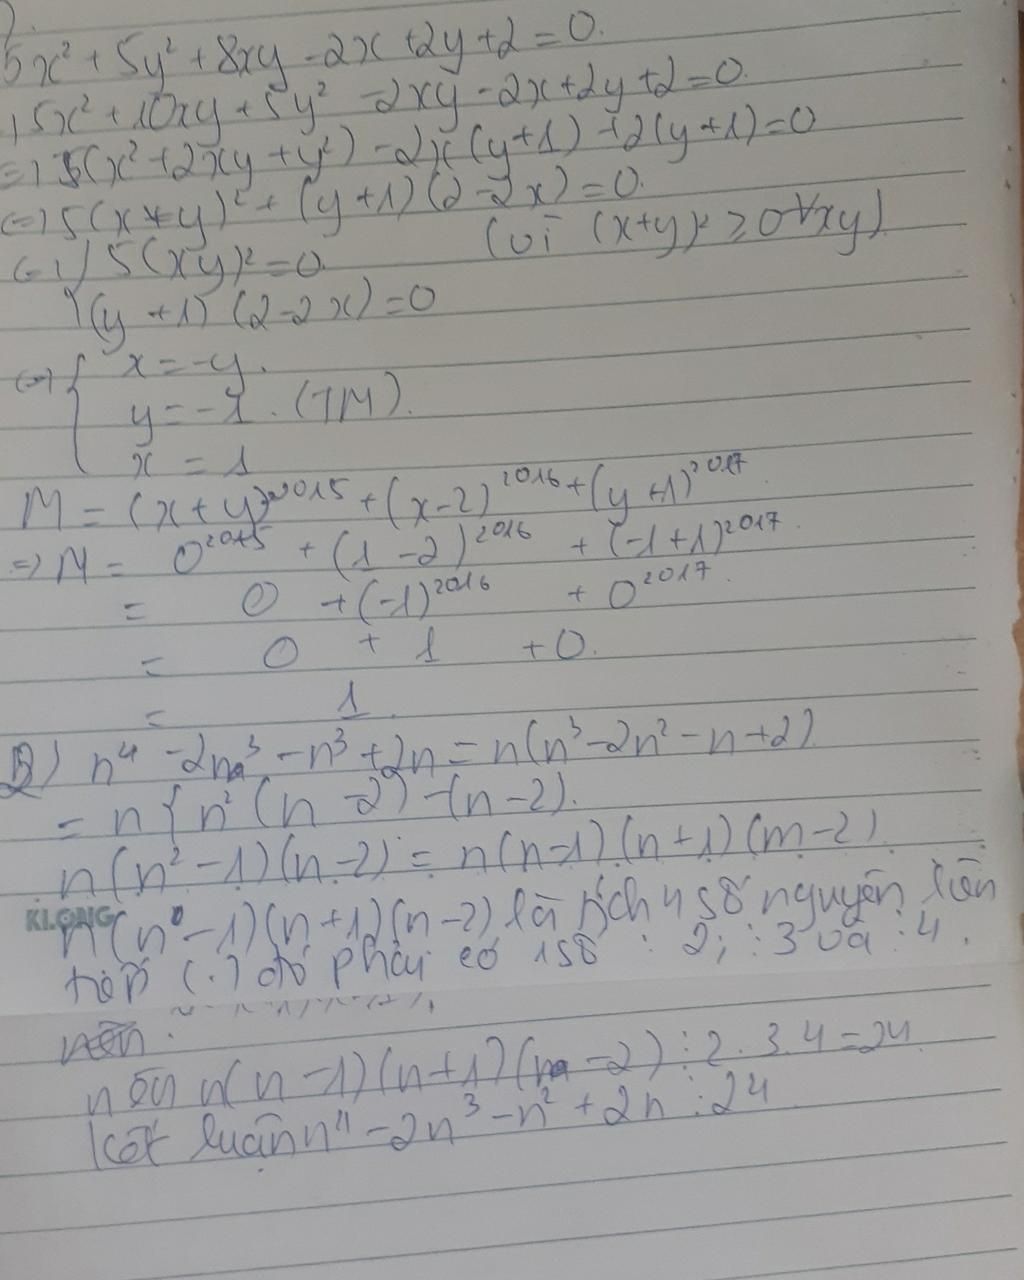 5x² + 5y² + 8xy - 2x + 2y + 2 = 0.
5x² + 10xy + 5y² - 2xy - 2x + 2y + 2 = 0.
=) 5(x² + 2xy + y²) - 2x(y+1) + 2(y+1) = 0
(=) 5(x+y)² + (y+1)(2-2x) = 0.
(=) 5(xy)² = 0. (vì (x+y)² ≥ 0 ∀xy)
(y+1)(2-2x) = 0
(=) { x = -y.
y = -1. (TM).
x = 1
M = (x+y)²⁰¹⁵ + (x-2)²⁰¹⁶ + (y+1)²⁰¹⁷
=) M = 0²⁰¹⁵ + (1-2)²⁰¹⁶ + (-1+1)²⁰¹⁷.
= 0 + (-1)²⁰¹⁶ + 0²⁰¹⁷.
= 0 + 1 + 0.
= 1.
2) n⁴ - 2n³ - n³ + 2n = n(n³ - 2n² - n + 2)
= n { n² (n-2) - (n-2).
n(n²-1)(n-2) = n(n-1)(n+1)(m-2)
KLONG
n(n-1)(n+1)(n-2) là tích 4 số nguyên liên
tiếp (.) đó phải có 1 số ⋮ 2; ⋮ 3 và ⋮ 4.
nên n(n-1)(n+1)(n-2) ⋮ 2.3.4 = 24.
Kết luận n⁴ - 2n³ - n² + 2n ⋮ 24